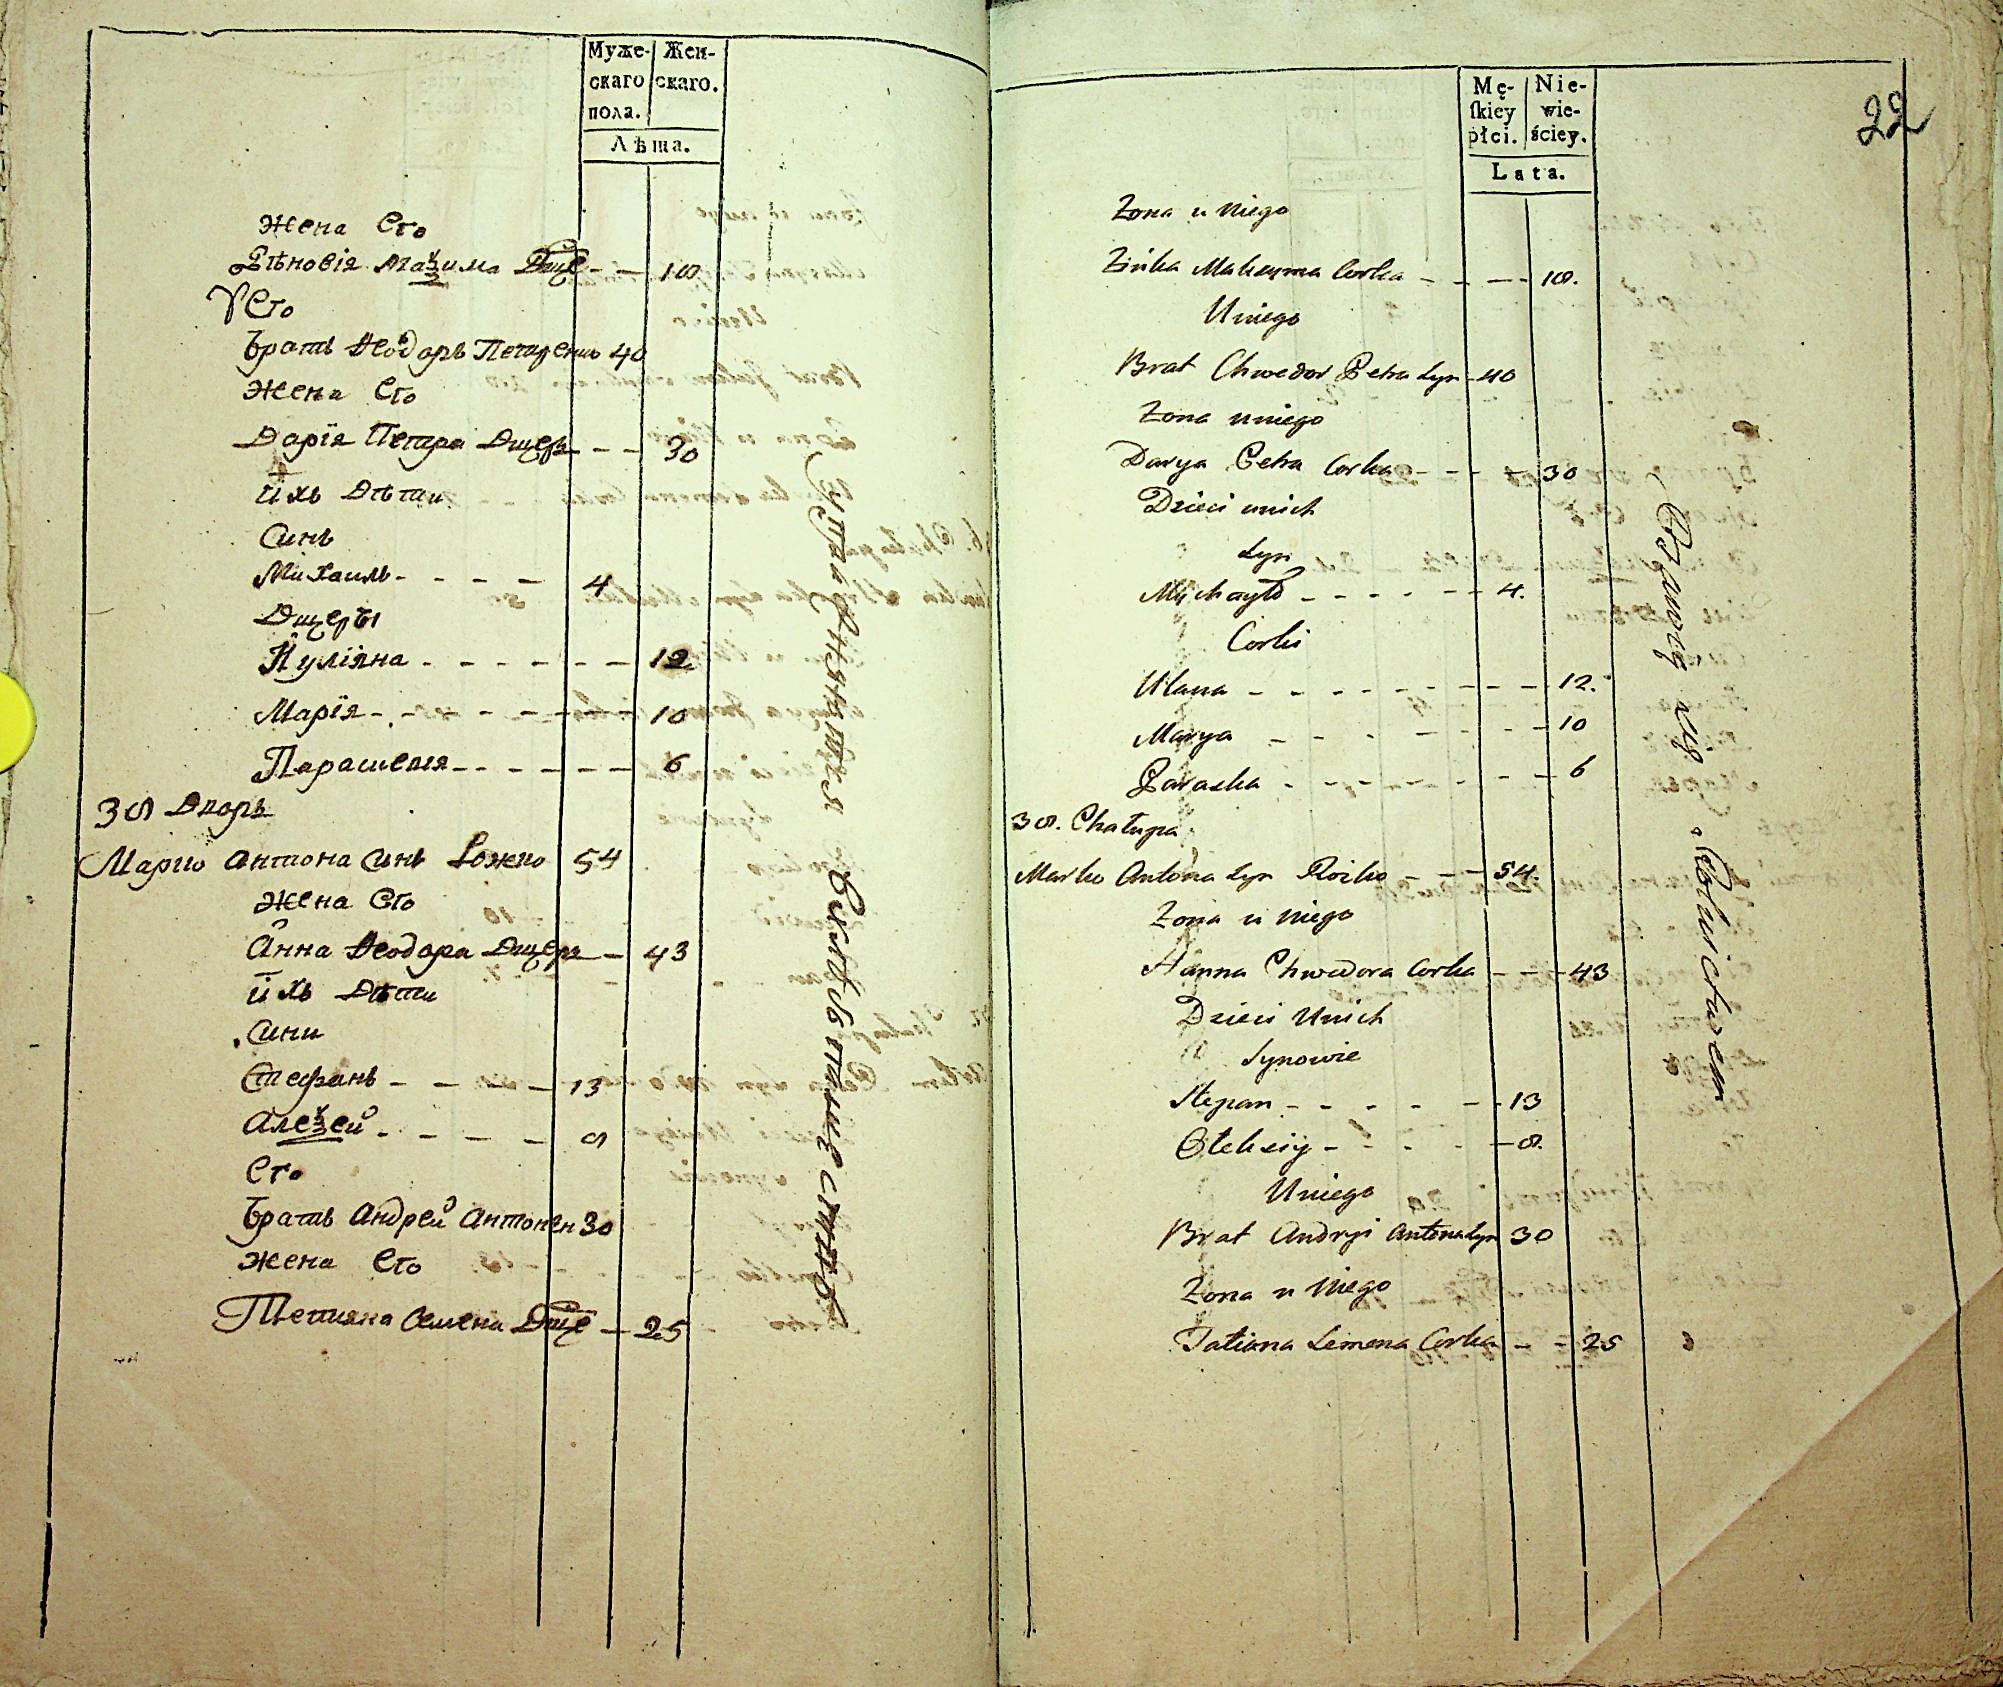 Муже-
скаго
пола.
Жен-
скаго.
Лѣта.
Жена Его
Зѣновія Маѯима Дще 18
У Его
Братъ Ѳеодоръ Петренъ 40
Жена Его
Дарїя Петра Дщерь 30
ихъ Дѣти
Синъ
Михаилъ 4
Дщеры
Иулїяна 12
Марїя 10
Параскевія 6
38 Дворъ
Марко Антона Синъ Рожко 54
Жена Его
Анна Ѳеодора Дщерь 43
ихъ Дѣти
Сини
Стефанъ 13
Алеѯей 8
Его
Братъ Андрей Антонен 30
Жена Его
Тетияна Семена Дще 25
Mę-
ſkiey
płci.
Nie-
wie-
ściey.
Lata.
22
Zona u Niego
Zinka Maksyma Corka 18.
U niego
Brat Chwedor Petra Syn 40
Zona u niego
Darya Petra Corka 30
Dzieci u nich
Syn
Mychayło 4.
Corki
Ulana 12.
Marya 10
Paraska 6
38. Chałupa
Marko Antona Syn Rożko 54.
Zona u Niego
Hanna Chwedora Corka 43
Dzieci U nich
Synowie
Stepan 13
Ołeksiy 8.
U niego
Brat Andryi Antona Syn 30
Zona u Niego
Tatiana Semena Corka 25
Bawią się Rolnictwem